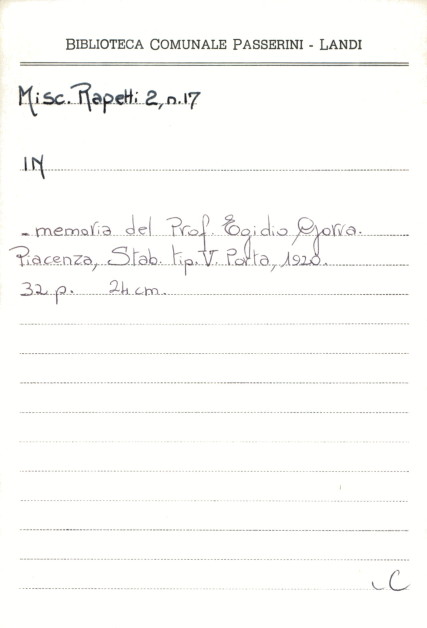 BIBLIOTECA COMUNALE PASSERINI - LANDI
Misc. Rapetti 2, n. 17
IN
- memoria del Prof. Egidio Gorra.
Piacenza, Stab. tip. V. Porta, 1920.
32 p. 24 cm.